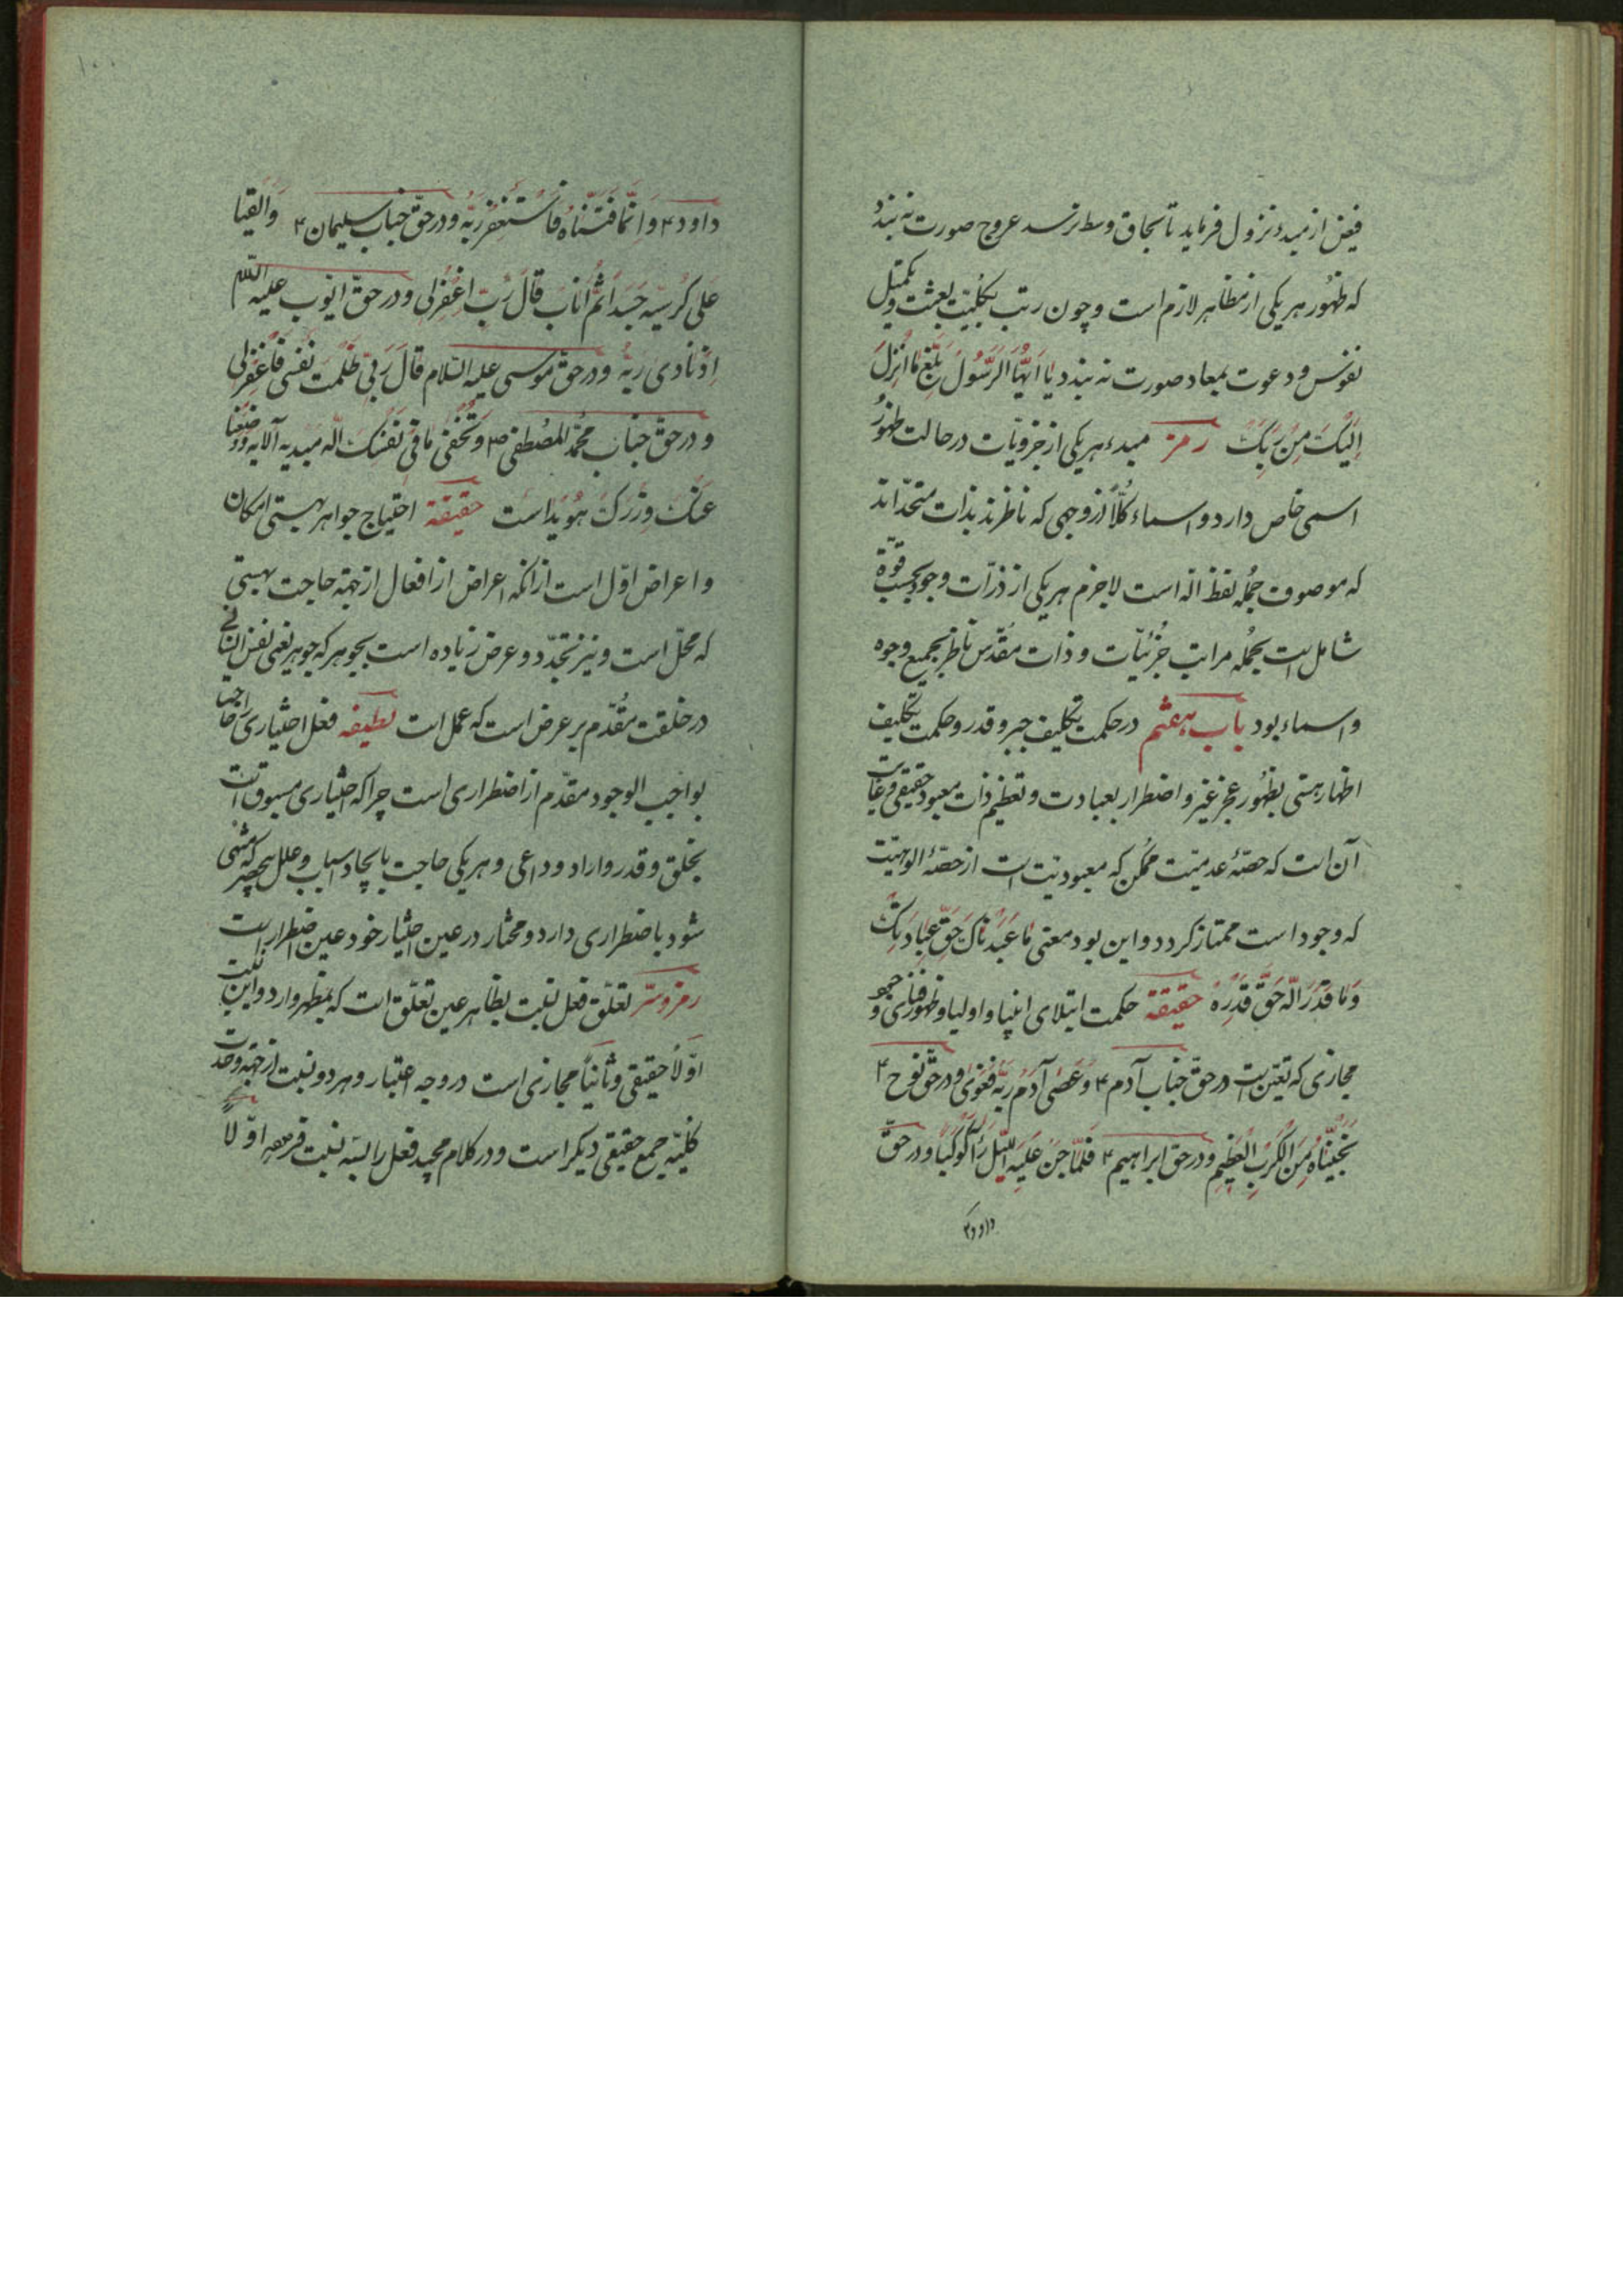 فیض از مبدء نزول فرماید تا بحاق وسط نرسد عروج صورت نه بندد
که ظهور هر یکی از مظاهر لازم است و چون رتب بکلیت بعثت و تکمیل
نفوس و دعوت بمعاد صورت نه بندد یا اَیّها الرَّسُولُ بَلِّغ ما اُنزِلَ
اِلَیکَ مِن رَبِّکَ رمز مبدء هر یکی از جزویّات در حالت ظهور
اسمی خاص دارد و اسماء کُلّاً از وجهی که ناظرند بذات متحدّ اند
که موصوف جُمله لفظ اللّه است لاجرم هر یکی از ذرّات وجود بحسب قوّة
شامل است بجُمله مراتب جُزئیّات و ذات مُقدّس ناظر بجمیع وجوه
و اسماء بود باب هفتم در حکمت تکلیف جبر و قدر و حکمت تکلیف
اظهار هستی بظهور عجز غیر و اضطرار بعبادت و تعظیم ذات معبود حقیقی و غایت
آن است که حصّهٔ عدمیّت ممکن که معبودیت است از حصّهٔ الوهیّت
که وجود است ممتاز کردد و این بود معنی ما عَبَدناکَ حَقَّ عِبادَتِکَ
وَ ما قَدَرَ اللّه حَقَّ قَدرِه حقیقة حکمت ابتلای انبیا و اولیا و ظهور فنای وجود
مجازی که تعیّن است در حقّ جناب آدم ۴ وَ عَصی آدَمُ رَبَّه فَغَوی و در حقّ نوح ۴
نَجَّیناهُ مِنَ الکَربِ العَظیمِ و در حق ابراهیم ۴ فَلَمّا جَنَّ عَلَیهِ اللَّیلُ رَاَ کَوکَباً و در حقّ
داود ۴
۱۰۰
داود ۴ وَ اِنَّما فَتَنّاهُ فَاستَغفَرَ رَبَّه و در حقّ جناب سلیمان ۴ وَ اَلقَینا
عَلی کُرسِیّه جَسَداً ثُمَّ اَنابَ قالَ رَبِّ اغفِر لی و در حقّ ایّوب علیه السّلام
اِذ نادی رَبَّهُ و در حقّ موسی علیه السّلام قالَ رَبِّ اِنّی ظَلَمتُ نَفسی فَاغفِر لی
و در حقّ جناب محمّد المصطفی ص وَ تُخفی ما فی نَفسِکَ اللّه مُبدیه آلایه وَ وَضَعنا
عَنکَ وِزرَکَ هُویداست حقیقة احتیاج جواهر بهستی امکان
و اعراض اوّل است از انکه اعراض از افعال از جهة حاجت بهستی
که محلّ است و نیز تجدّد و عرض زیاده است بجوهر که جوهر یعنی نفس انسانی
در خلقت مقُدّم بر عرض است که عمل است لطیفه فعل اختیاری را حاجت
بواجب الوجود مقدّم از اضطراری است چرا که اختیاری مسبوق است
بخلق و قدر و اراد و داعی و هر یکی حاجت بایجاد اسباب و علل بچیزی که منتهی
شود باضطراری دارد و مختار در عین اختیار خود عین اضطرار است
رمز و سرّ تعلّق فعل نسبت بظاهر عین تعلّق است که بمظهر وارد و این نسبت
اوّلاً حقیقی و ثانیاً مجازی است در وجه اعتبار و هر دو نسبت از جهة وحدت
کلّیّه جمع حقیقی دیکر است و در کلام مجید فعل را نسبت اوّلاً